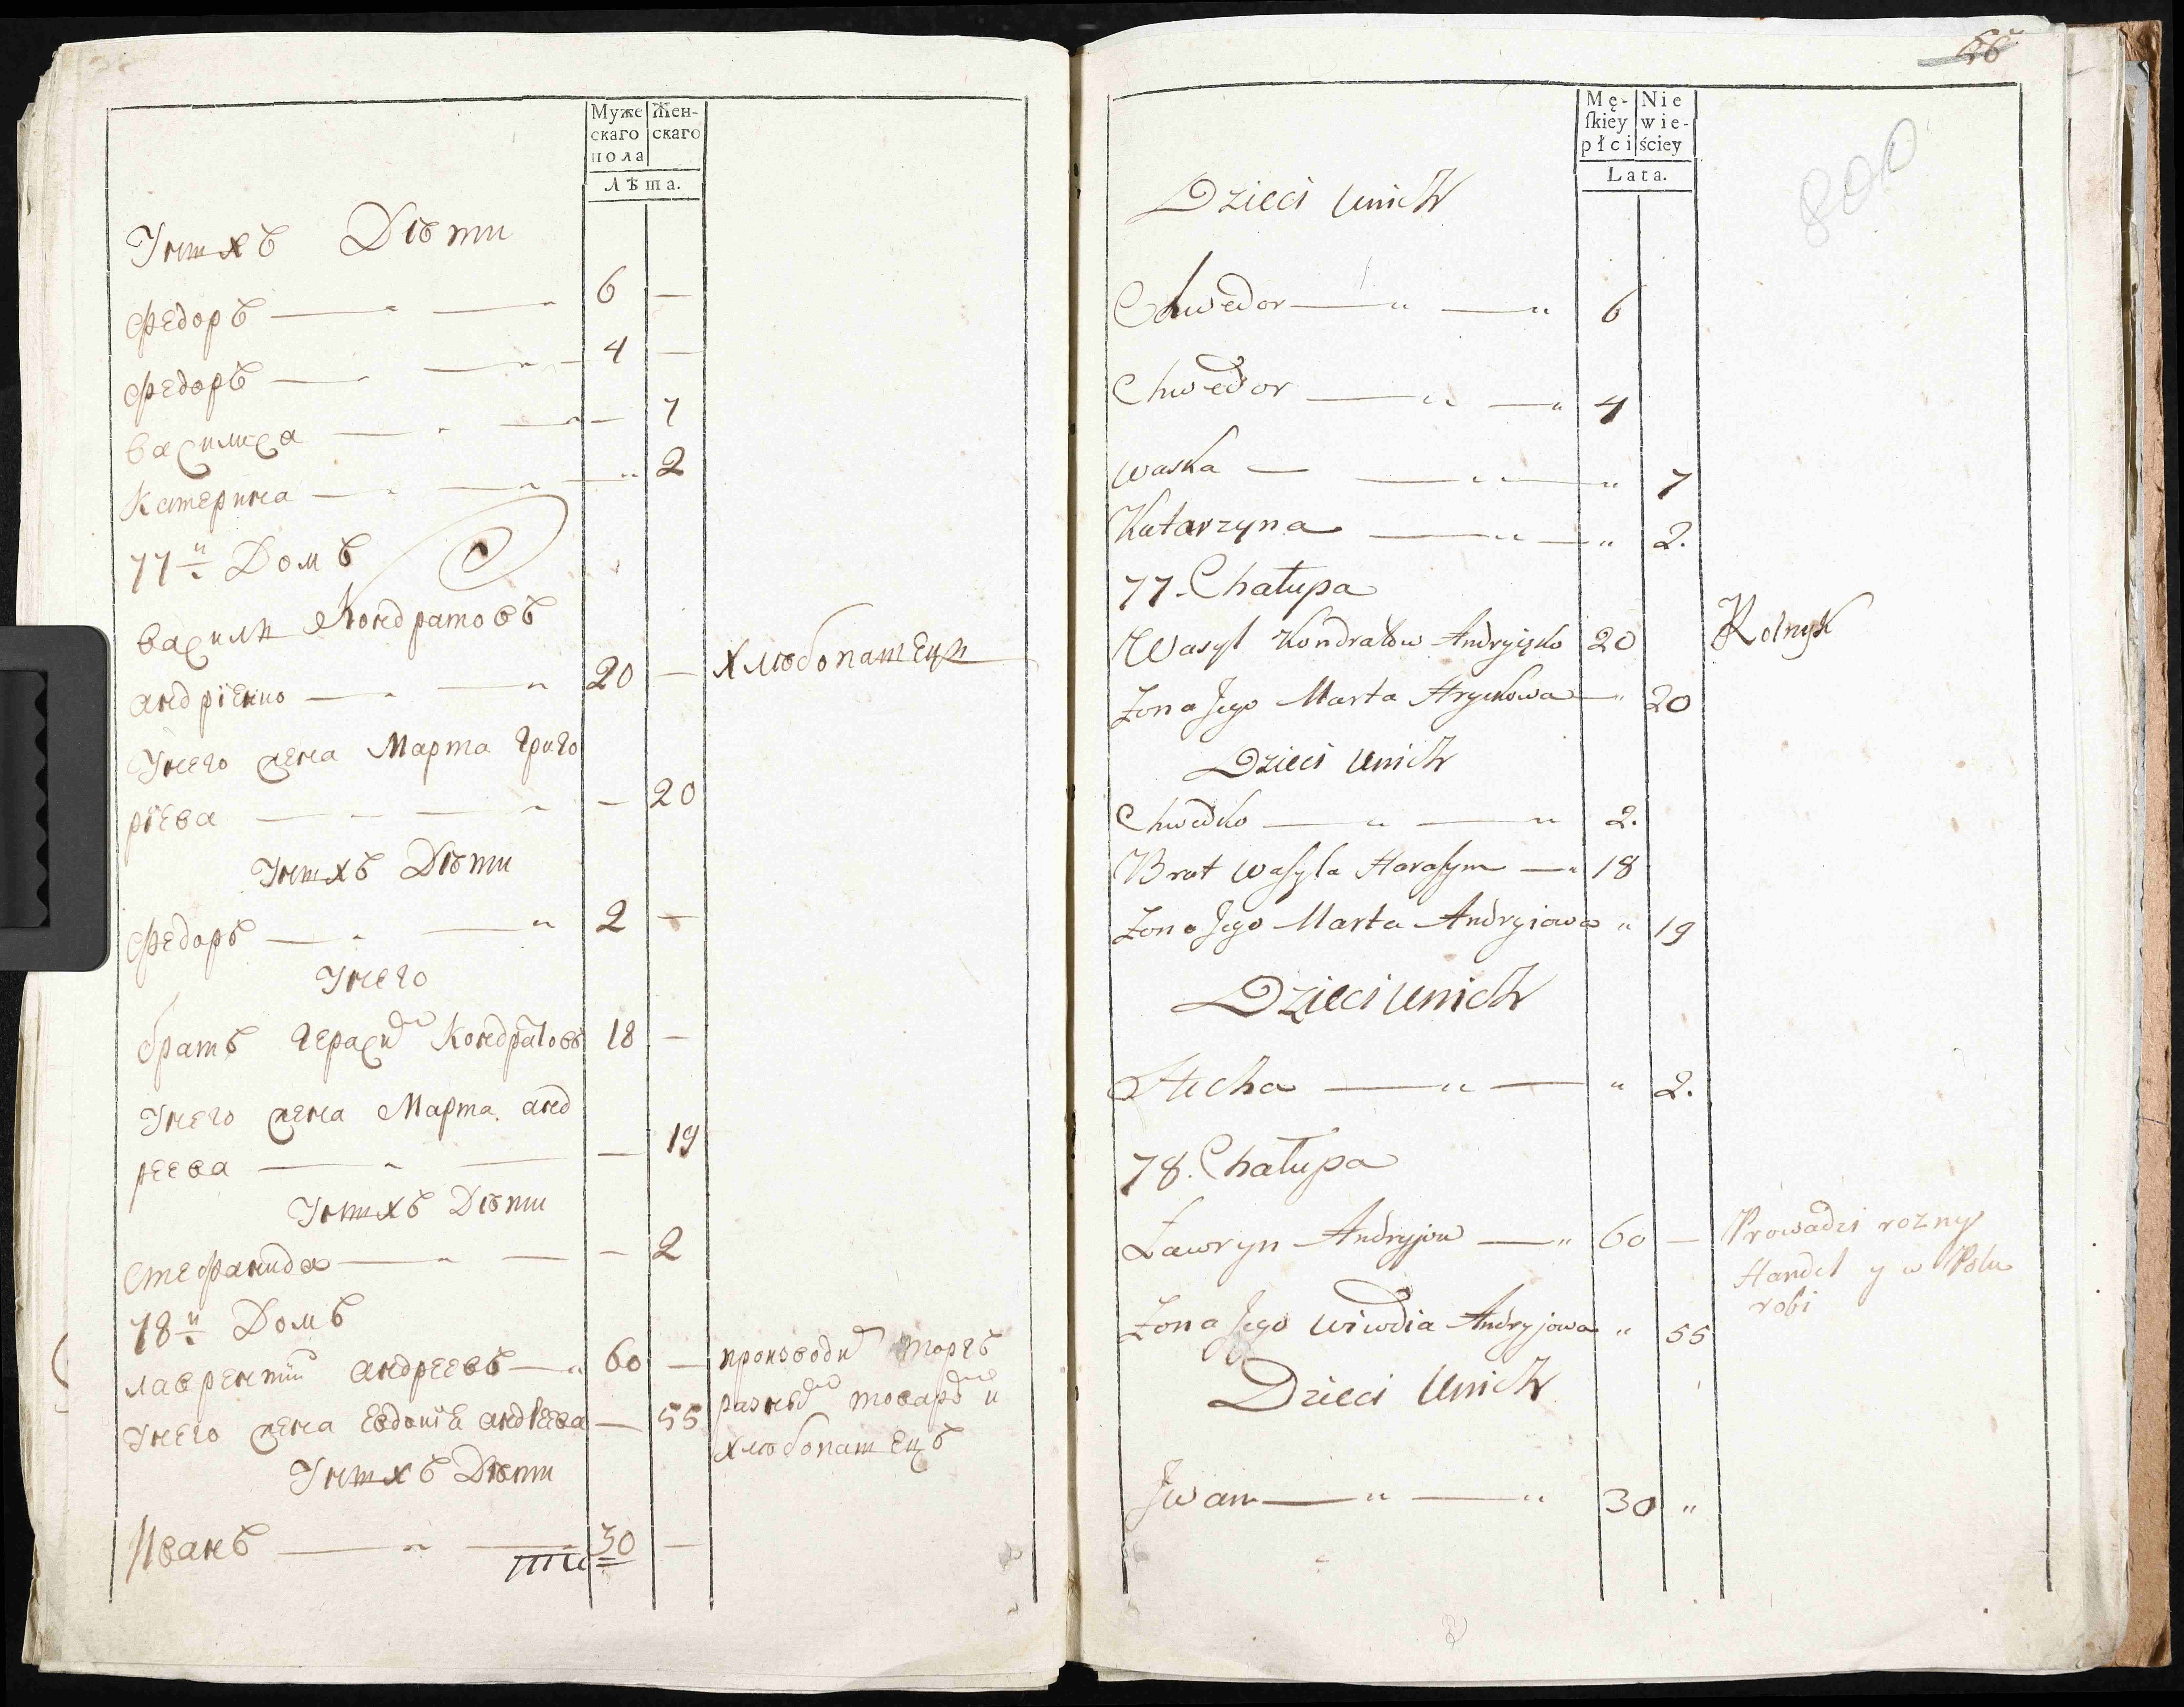 Муже
скаго
пола
Жен-
скаго
Лѣта.
Унихъ Дѣти
Федоръ — " — " 6 —
Федоръ — " — " — 4 —
Василиса — " — " — 7
Катерина — " — " — " 2
77й Домъ
Василй Кондратовъ
Андріенко — " — " 20 — Хлѣбопашецъ
Унего жена Марта Григо
ріева — " — " — 20
Унихъ Дѣти
Федоръ — " — " 2 —
Унего
братъ Герасим Кондратовъ 18 —
Унего жена Марта Анд
реева — " — — 19
Унихъ Дѣти
Стефанида — " — — 2
78й Домъ
Лаврентий Андреевъ — " 60 — производит торгъ
разным товаром и
Унего жена Евдокія Андреева — 55 хлѣбопашецъ
Унихъ Дѣти
Иванъ — " — 30 —
66
800
Mę-
ſkiey
płci
Nie
wie-
ściey
Lata.
Dzieci unich
Chwedor — " — " 6
Chwedor — " — " 4
Waska — — " — " 7
Katarzyna — " — " 2.
77. Chałupa
Wasyl Kondratow Andryięko 20 Rolnyk
Żona Jego Marta Hryckowa — " 20
Dzieci unich
Chwedko — " — " 2.
Brat Waſyla Haraſym — " 18
Żona Jego Marta Andryiowa " 19
Dzieci unich
Stecha — " — " 2.
78. Chałupa
Ławryn Andryjow — " 60 — Prowadzi rozny
Handel y w Polu
robi
Żona Jego Wiwdia Andryjowa " 55
Dzieci Unich
Jwan — " — " 30 "